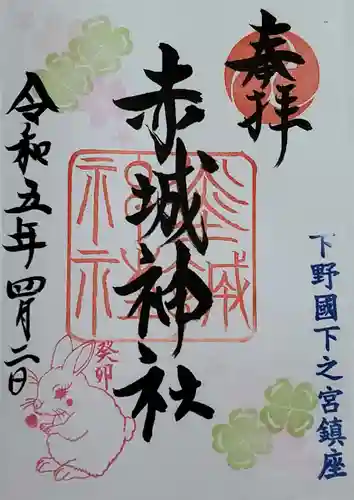 奉拝
下野國下之宮鎮座
赤城神社
癸卯
令和五年四月二日